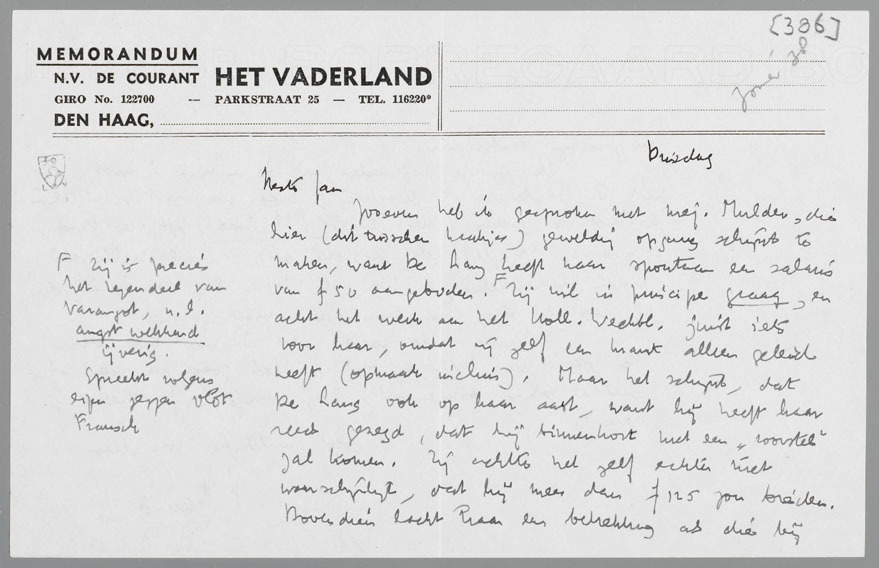 [386]
zomer 38
MEMORANDUM
N.V. DE COURANT HET VADERLAND
GIRO No. 122700 — PARKSTRAAT 25 — TEL. 116220*
DEN HAAG,
Dinsdag
Beste Jan
Zooeven heb ik gesproken met mej. Mulder, die
hier (dit tusschen haakjes) geweldig opgang schijnt te
maken, want De Lang heeft haar spontaan een salaris
van f 50 aangeboden. F Zij wil in principe graag, en
acht het werk aan het Holl. Weekbl. juist iets
voor haar, omdat zij zelf een krant alleen geleid
heeft (opmaak incluis). Maar het schijnt, dat
De Lang ook op haar aast, want hij heeft haar
reeds gezegd, dat hij binnenkort met een „voorstel"
zal komen. Zij achtte het zelf echter niet
waarschijnlijk, dat hij meer dan f 125 zou bieden.
Bovendien lacht haar een betrekking als die bij
F Zij is precies
het tegendeel van
Varangot, n.l.
angstwekkend
ijverig.
Spreekt volgens
eigen zeggen vlot
Fransch